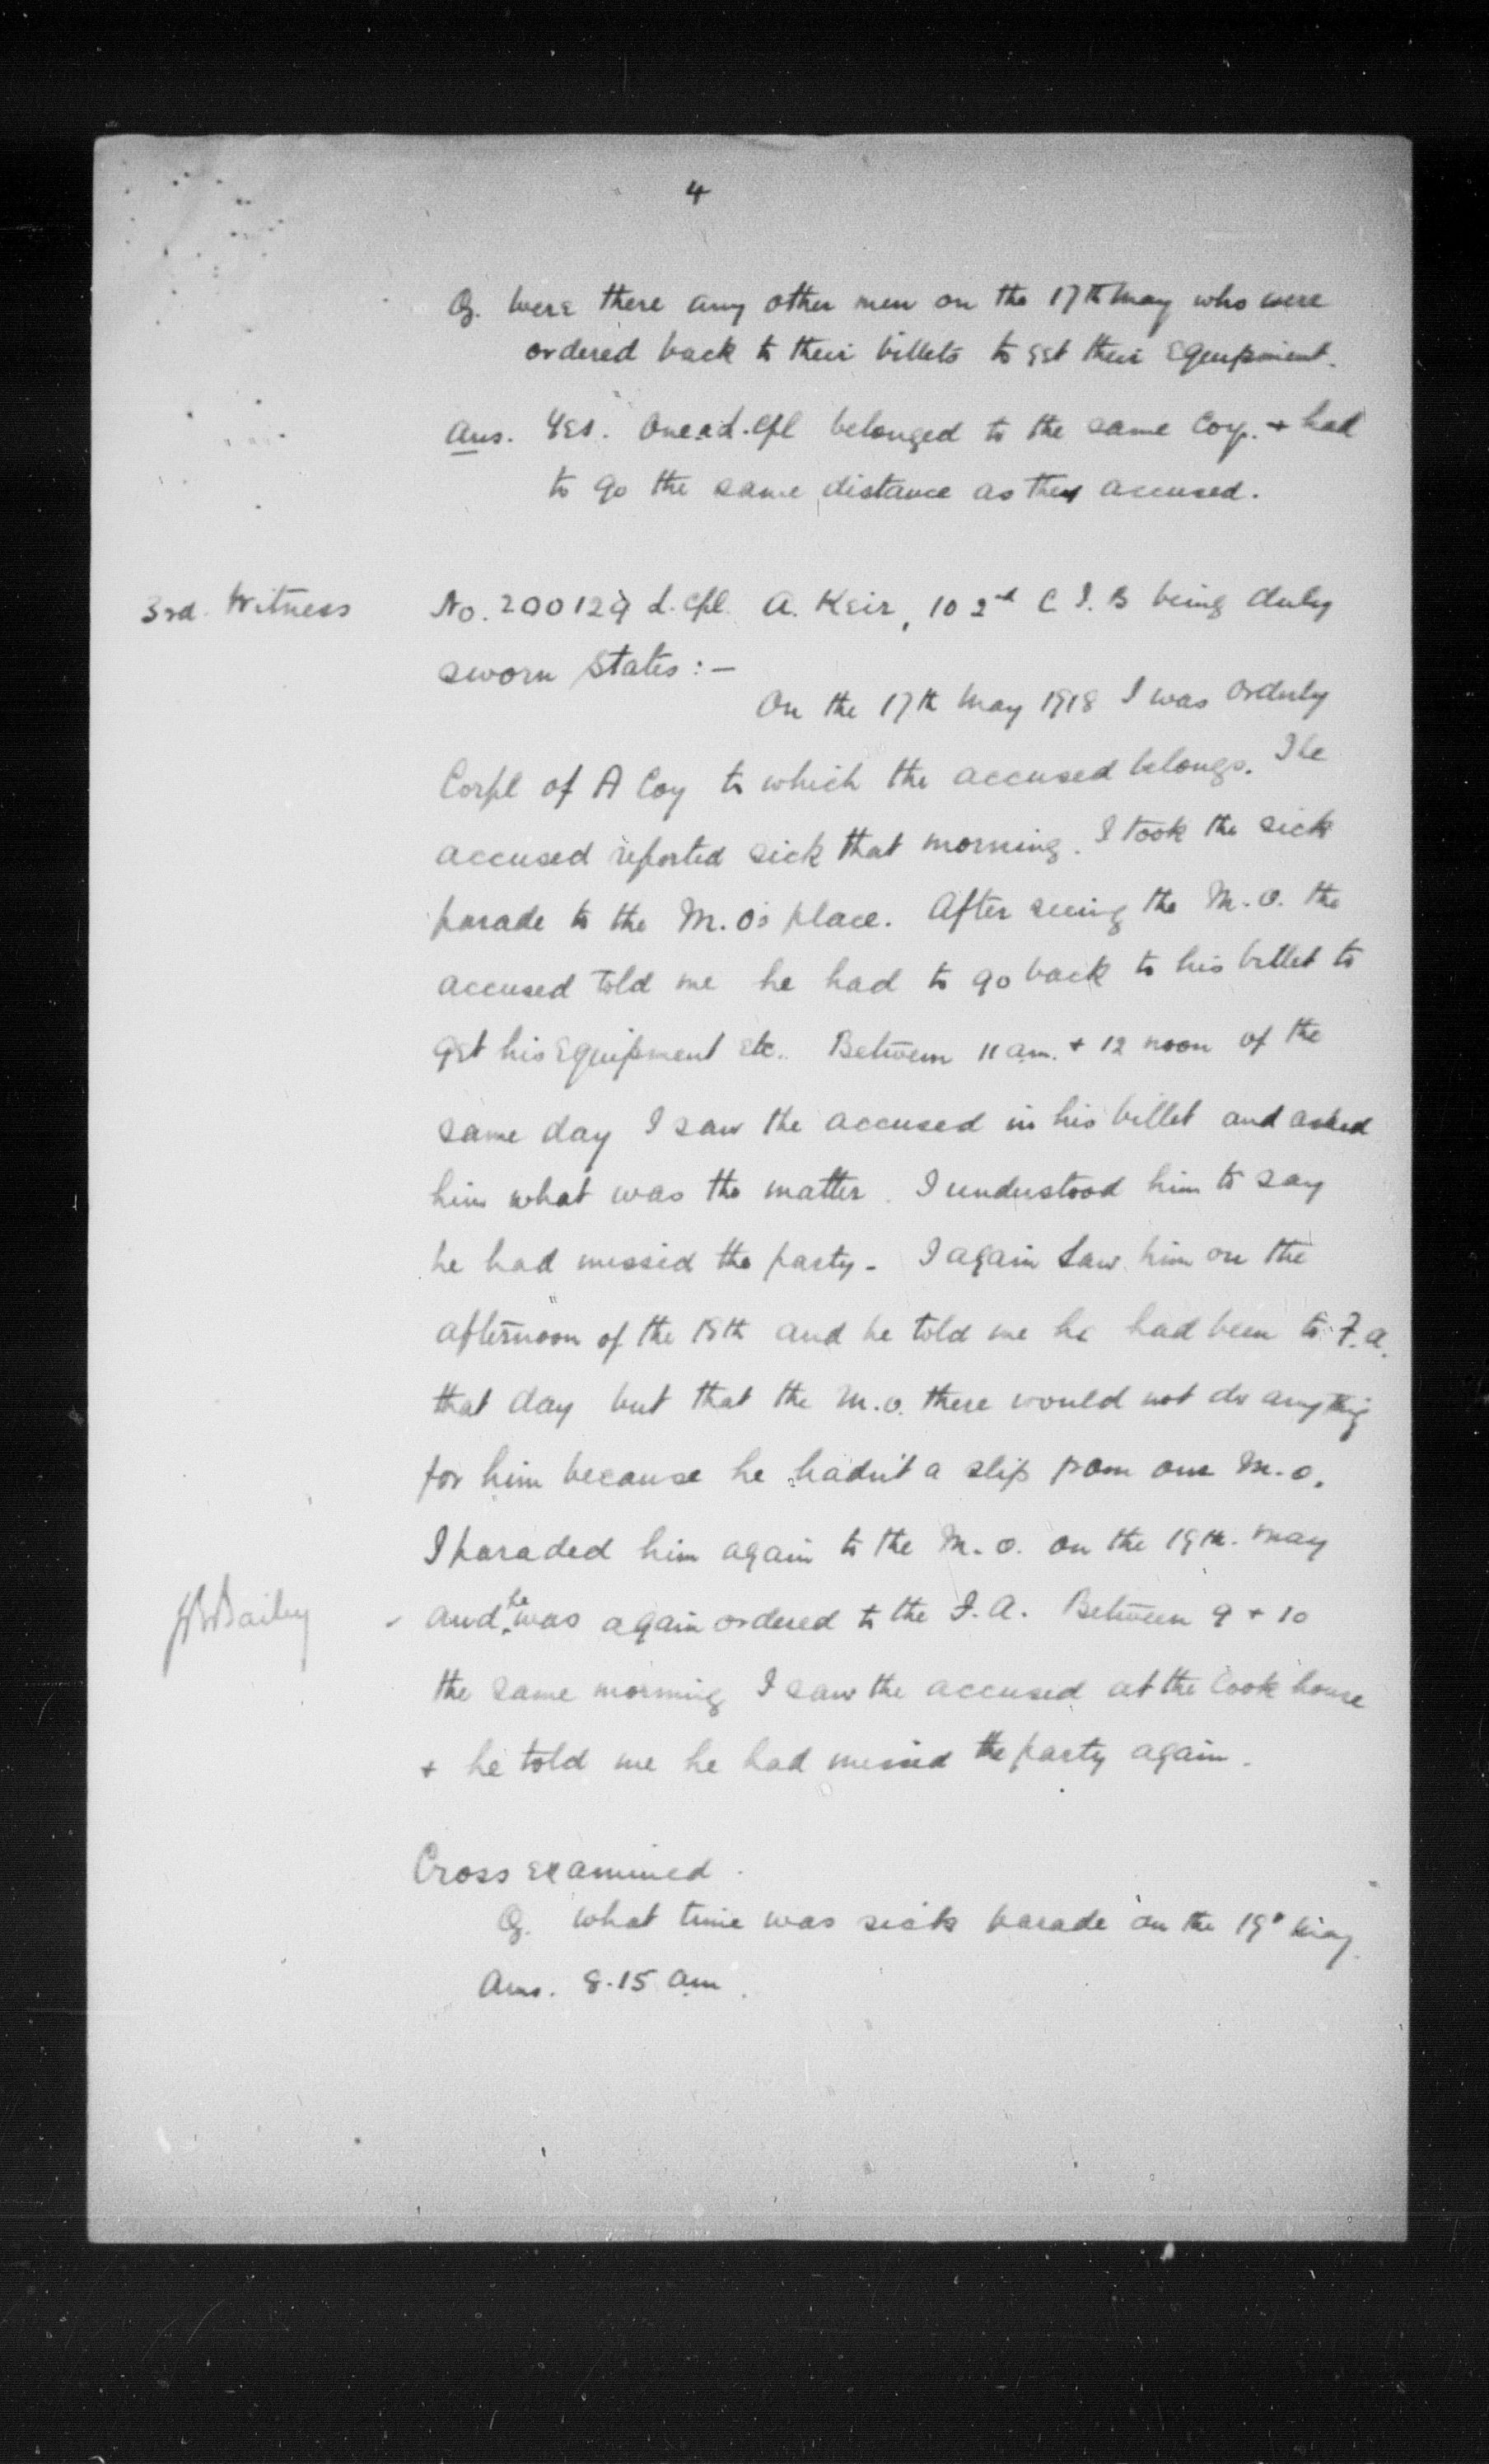 4
Q. Were there any other men on the 17th May who were
ordered back to their billets to get their equipment.
Ans. Yes. One a L.Cpl belonged to the same Coy. + had
to go the same distance as the accused.
3rd. Witness No. 200129 L.Cpl. A. Keir, 102nd C I. B being duly
sworn states:-
On the 17th May 1918 I was Orderly
Corpl of A Coy to which the accused belongs. The
accused reported sick that morning. I took the sick
parade to the M.O's place. After seeing the M.O. the
accused told me he had to go back to his billet to
get his equipment etc. Between 11 am. + 12 noon of the
same day I saw the accused in his billet and asked
him what was the matter. I understood him to say
he had missed the party. I again saw him on the
afternoon of the 18th and he told me he had been to F.A.
that day but that the M.O. there would not do anything
for him because he hadn't a slip from our M.O.
I paraded him again to the M.O. on the 19th. May
and he was again ordered to the F.A. Between 9 + 10
Bailey
the same morning I saw the accused at the Cook house
+ he told me he had missed the party again.
Cross examined.
Q. What time was sick parade on the 19th May.
Ans. 8.15 am.